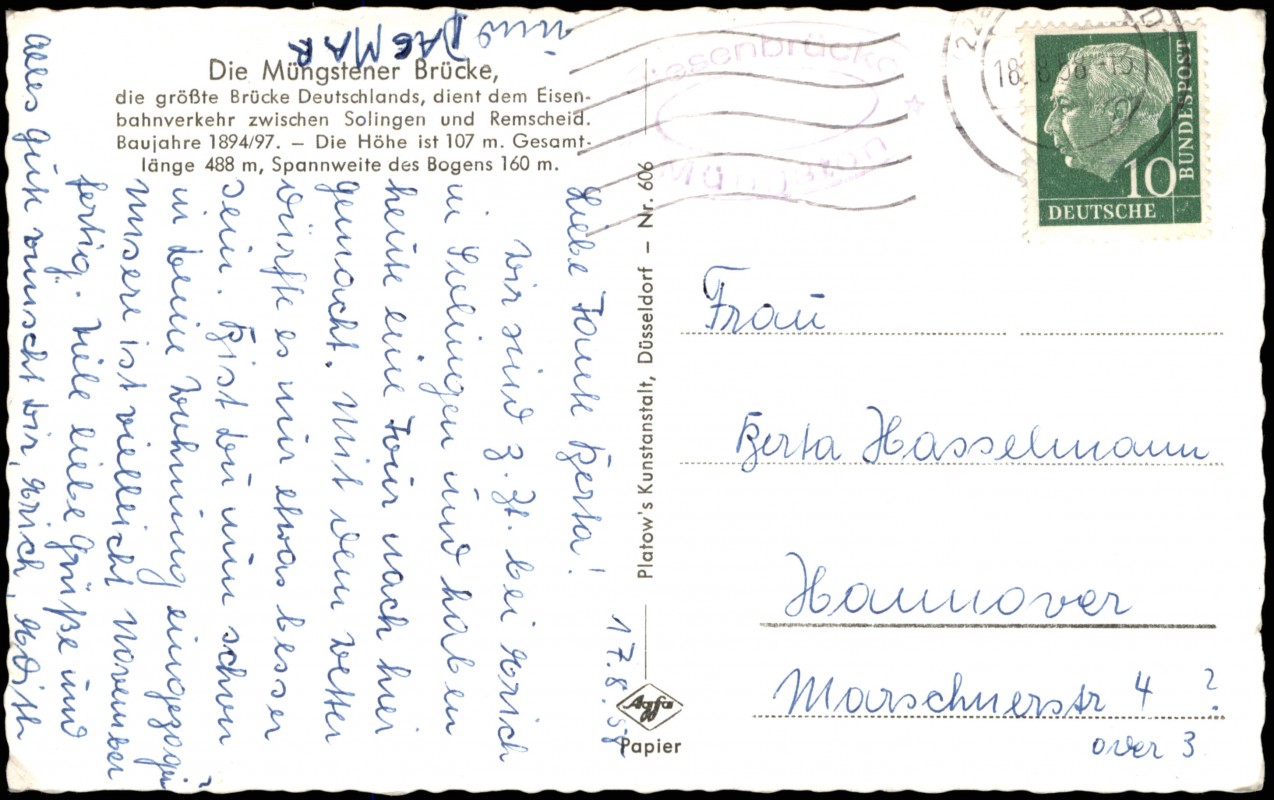 Die Müngstener Brücke,
die größte Brücke Deutschlands, dient dem Eisen-
bahnverkehr zwischen Solingen und Remscheid.
Baujahre 1894/97. – Die Höhe ist 107 m. Gesamt-
länge 488 m, Spannweite des Bogens 160 m.
17.8.58
Liebe Tante Berta!
Wir sind z. Zt. bei Erich
in Solingen und haben
heute eine Tour nach hier
gemacht. Mit dem Wetter
dürfte es nur etwas besser
sein. Bist Du nun schon
in Deine Wohnung eingezogen?
Unsere ist vielleicht November
fertig. Viele liebe Grüße und
alles Gute wünscht Dir, Erich, Edith
und DAGMAR
Platow's Kunstanstalt, Düsseldorf – Nr. 606
Agfa
Papier
Riesenbrücke
18.8.58-15
10
DEUTSCHE
BUNDESPOST
Frau
Berta Hasselmann
Hannover
Marschnerstr 4 ?
oder 3